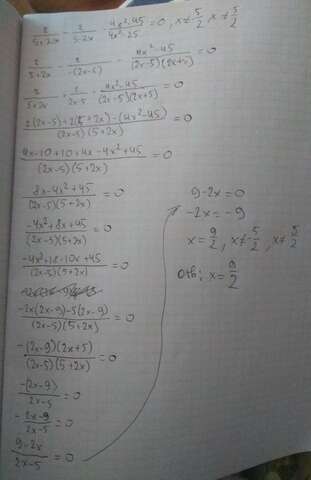 2/(5+2x) - 2/(5-2x) - (4x²-45)/(4x²-25) = 0, x≠-5/2, x≠5/2
2/(5+2x) - 2/(-(2x-5)) - (4x²-45)/((2x-5)(2x+5)) = 0
2/(5+2x) + 2/(2x-5) - (4x²-45)/((2x-5)(2x+5)) = 0
(2(2x-5)+2(5+2x)-(4x²-45))/((2x-5)(5+2x)) = 0
(4x-10+10+4x-4x²+45)/((2x-5)(5+2x)) = 0
(8x-4x²+45)/((2x-5)(5+2x)) = 0
(-4x²+8x+45)/((2x-5)(5+2x)) = 0
(-4x²+18-10x+45)/((2x-5)(5+2x)) = 0
(-2x(2x-9)-5(2x-9))/((2x-5)(5+2x)) = 0
(-(2x-9)(2x+5))/((2x-5)(5+2x)) = 0
(-(2x-9))/(2x-5) = 0
-(2x-9)/(2x-5) = 0
(9-2x)/(2x-5) = 0
9-2x=0
-2x=-9
x=9/2, x≠-5/2, x≠5/2
Отв: x=9/2